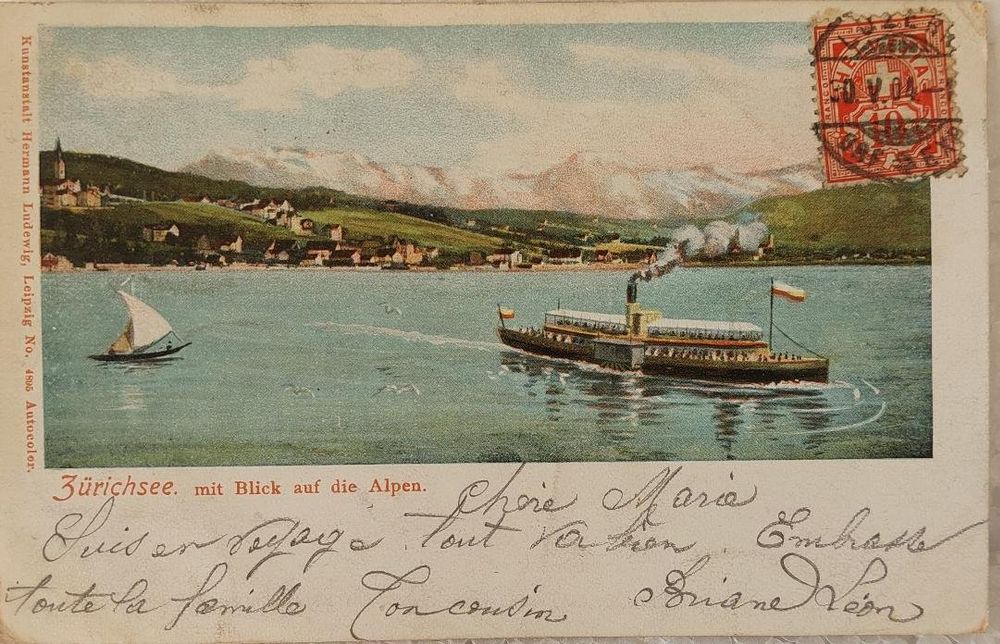 Kunstanstalt Hermann Ludewig, Leipzig No. 4895 Autocolor.
HELVETIA
FRANCO
10
LUZERN
V. 04
Zürichsee. mit Blick auf die Alpen.
chère Marie
Suis en voyage tout va bien Embrasse
toute la famille Ton cousin Léon